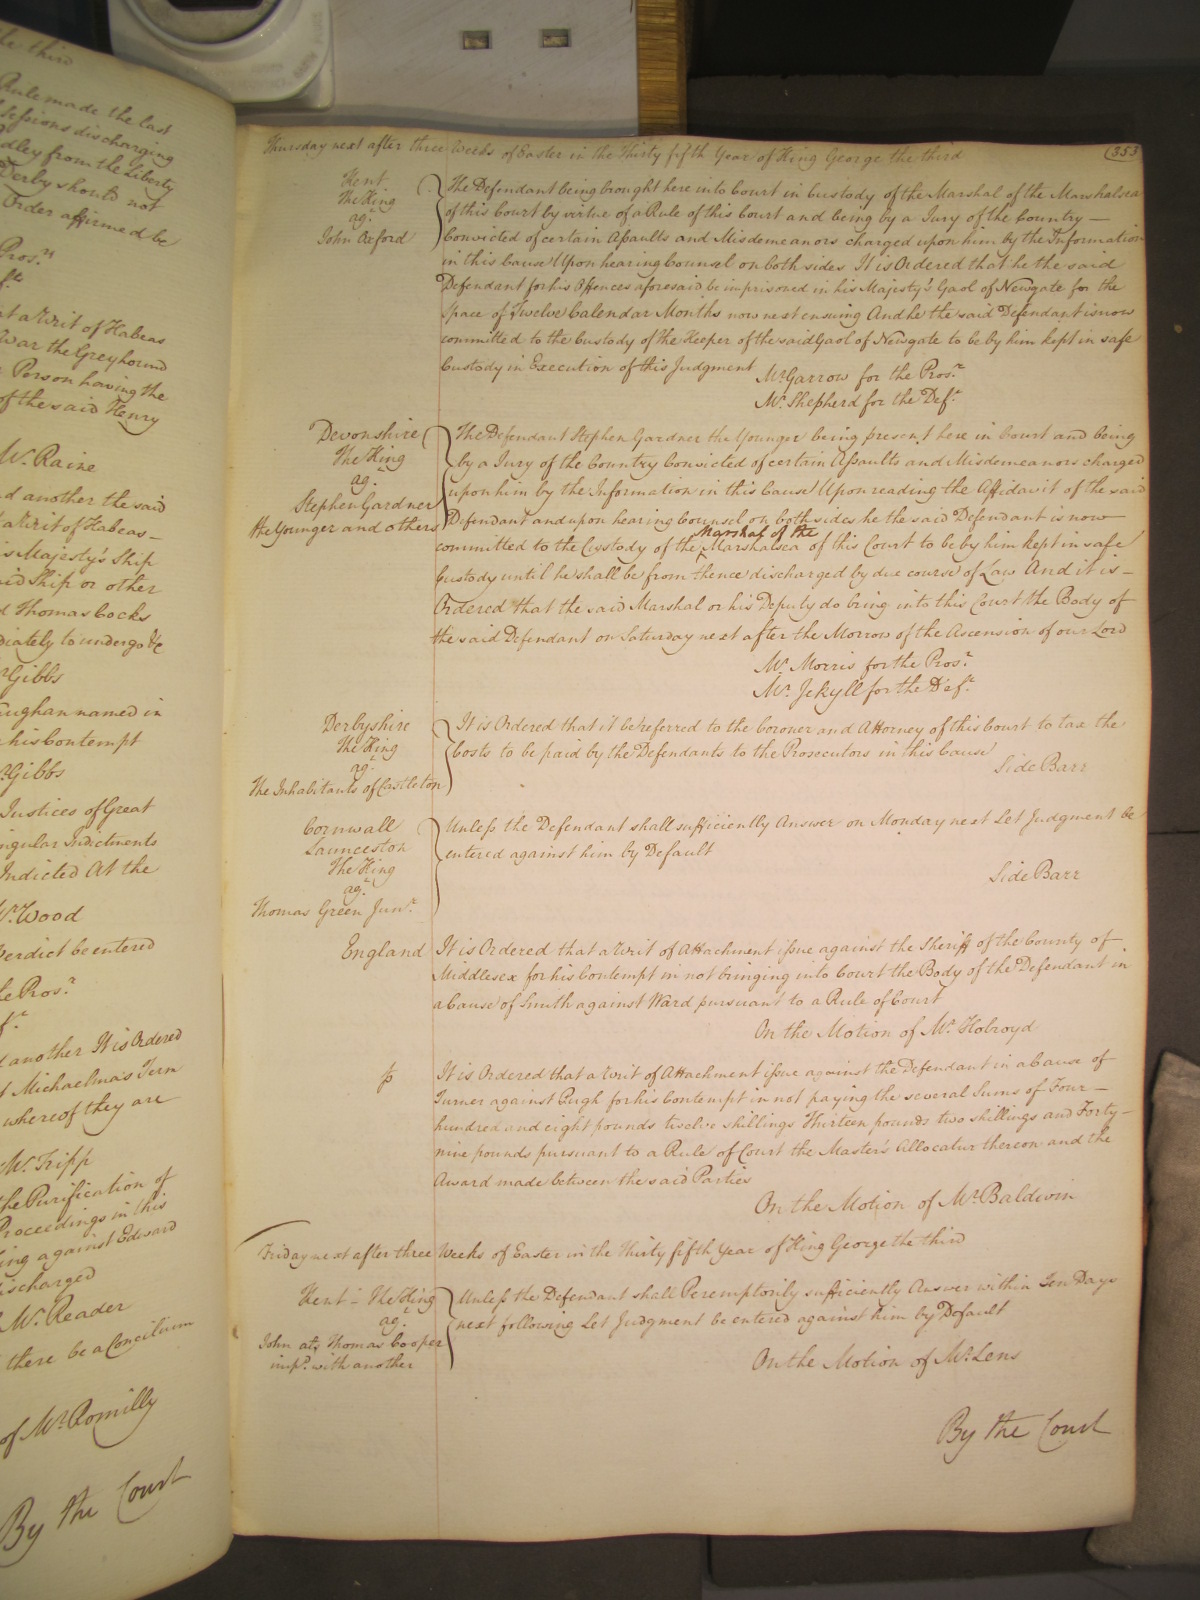 he third
Rule made the last
Sessions discharging
dley from the Liberty
Derby should not
Order affirmed be
Pros.r
ft
at a Writ of Habeas
War the Greyhound
Person having the
of the said Henry
Mr. Raine
d another the said
a Writ of Habeas –
is Majesty's Ship
aid Ship or other
d Thomas Cocks
diately to undergo &c
r Gibbs
aughan named in
his Contempt
r. Gibbs
Justices of Great
ngular Indictments
Indicted At the
Mr. Wood
Verdict be entered
he Pros.r
f.t
d another It is Ordered
t Michaelmas Term
whereof they are
Mr. Tripp
the Purification of
Proceedings in this
ing against Edward
discharged
Mr. Reader
there be a Concilium
of Mr. Romilly
By the Court
Thursday next after three Weeks of Easter in the Thirty fifth Year of King George the third
353
Kent
The King
ag.t
John Oxford
The Defendant being brought here into Court in Custody of the Marshal of the Marshalsea
of this Court by virtue of a Rule of this Court and being by a Jury of the Country —
Convicted of certain Assaults and Misdemeanors charged upon him by the Information
in this Cause Upon hearing Counsel on both sides It is Ordered that he the said
Defendant for his Offences aforesaid be imprisoned in his Majesty's Gaol of Newgate for the
Space of Twelve Calendar Months now next ensuing And he the said Defendant is now
committed to the Custody of the Keeper of the said Gaol of Newgate to be by him kept in safe
Custody in Execution of this Judgment
Mr. Garrow for the Pros.r
Mr. Shepherd for the Def.t
Devonshire
The King
ag.t
Stephen Gardner
the Younger and others
The Defendant Stephen Gardner the Younger being present here in Court and being
by a Jury of the Country Convicted of certain Assaults and Misdemeanors charged
upon him by the Information in this Cause Upon reading the Affidavit of the said
Defendant and upon hearing Counsel on both sides he the said Defendant is now
Marshal of the
committed to the Custody of the Marshalsea of this Court to be by him kept in safe
Custody until he shall be from thence discharged by due course of Law And it is –
Ordered that the said Marshal or his Deputy do bring into this Court the Body of
the said Defendant on Saturday next after the Morrow of the Ascension of our Lord
Mr. Morris for the Pros.r
Mr. Jekyll for the Def.t
Derbyshire
The King
ag.t
The Inhabitants of Castleton
It is Ordered that it be referred to the Coroner and Attorney of this Court to tax the
Costs to be paid by the Defendants to the Prosecutors in this Cause
Side Barr
Cornwall
Launceston
The King
ag.t
Thomas Green Jun.r
Unless the Defendant shall sufficiently Answer on Monday next Let Judgment be
entered against him by Default
Side Barr
England
It is Ordered that a Writ of Attachment issue against the Sheriff of the County of
Middlesex for his Contempt in not bringing into Court the Body of the Defendant in
a Cause of Smith against Ward pursuant to a Rule of Court
On the Motion of Mr. Holroyd
It is Ordered that a Writ of Attachment issue against the Defendant in a Cause of
Turner against Pugh for his Contempt in not paying the several Sums of Four –
hundred and eight pounds twelve shillings Thirteen pounds two shillings and Forty –
nine pounds pursuant to a Rule of Court the Master's Allocatur thereon and the
Award made between the said Parties
On the Motion of Mr. Baldwin
Friday next after three Weeks of Easter in the Thirty fifth Year of King George the third
Kent – The King
ag.t
John at.s Thomas Cooper
imp.d with another
Unless the Defendant shall Peremptorily sufficiently Answer within Ten Days
next following Let Judgment be entered against him by Default
On the Motion of Mr. Lens
By the Court